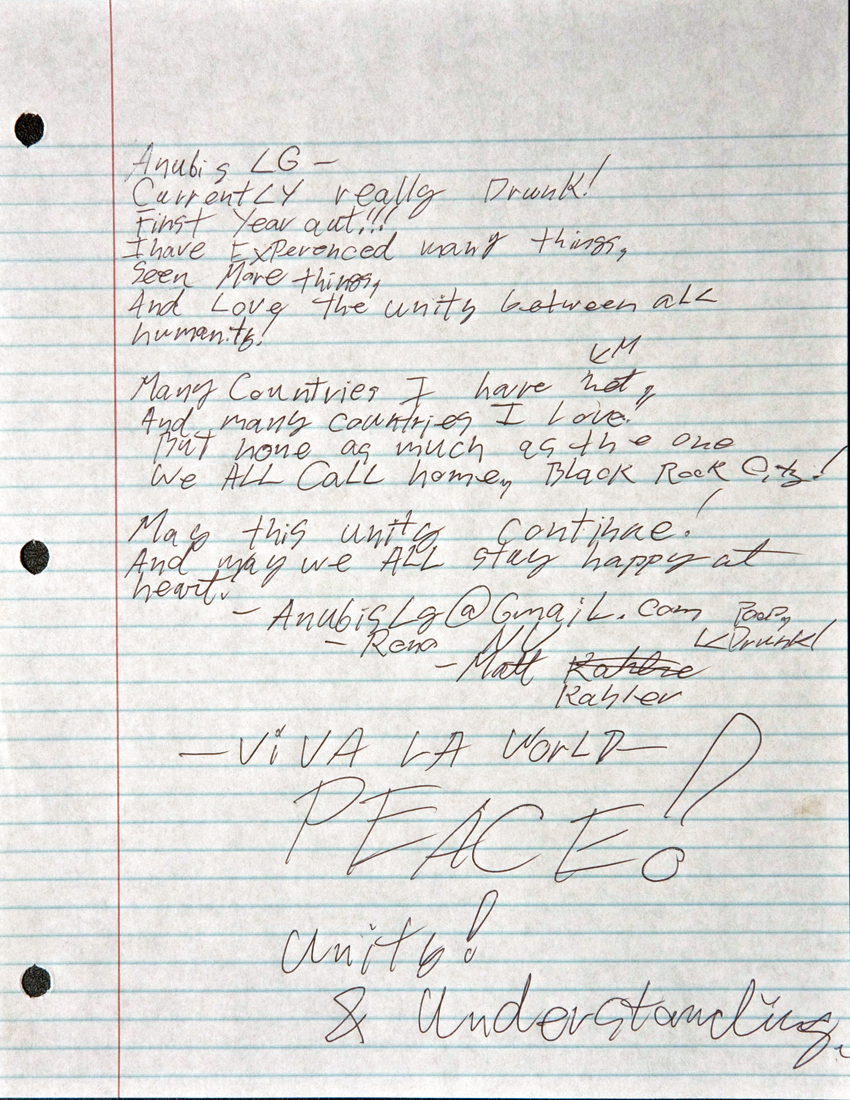 Anubis LG -
CurrentLY really Drunk!
First Year out!!!
I have ExPerenced many things,
Seen More things,
And Love the unity between aLL
humanity!
Many Countries I have
And many countries I Love!
But none as much as the one
We ALL CaLL home, BLack Rock City!
May this unity continue!
And may we ALL stay happy at
heart!
- AnubisLg@GmaiL.com
- Reno NV Drunk!
- Matt
Kahler
- ViVA LA WorLD -
PEACE!
Unity!
& Understanding.